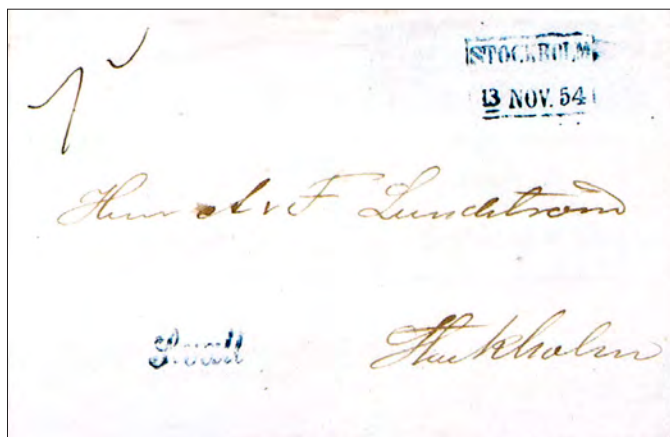 STOCKHOLM
13 NOV. 54
Herr A v F Lundström
Stockholm